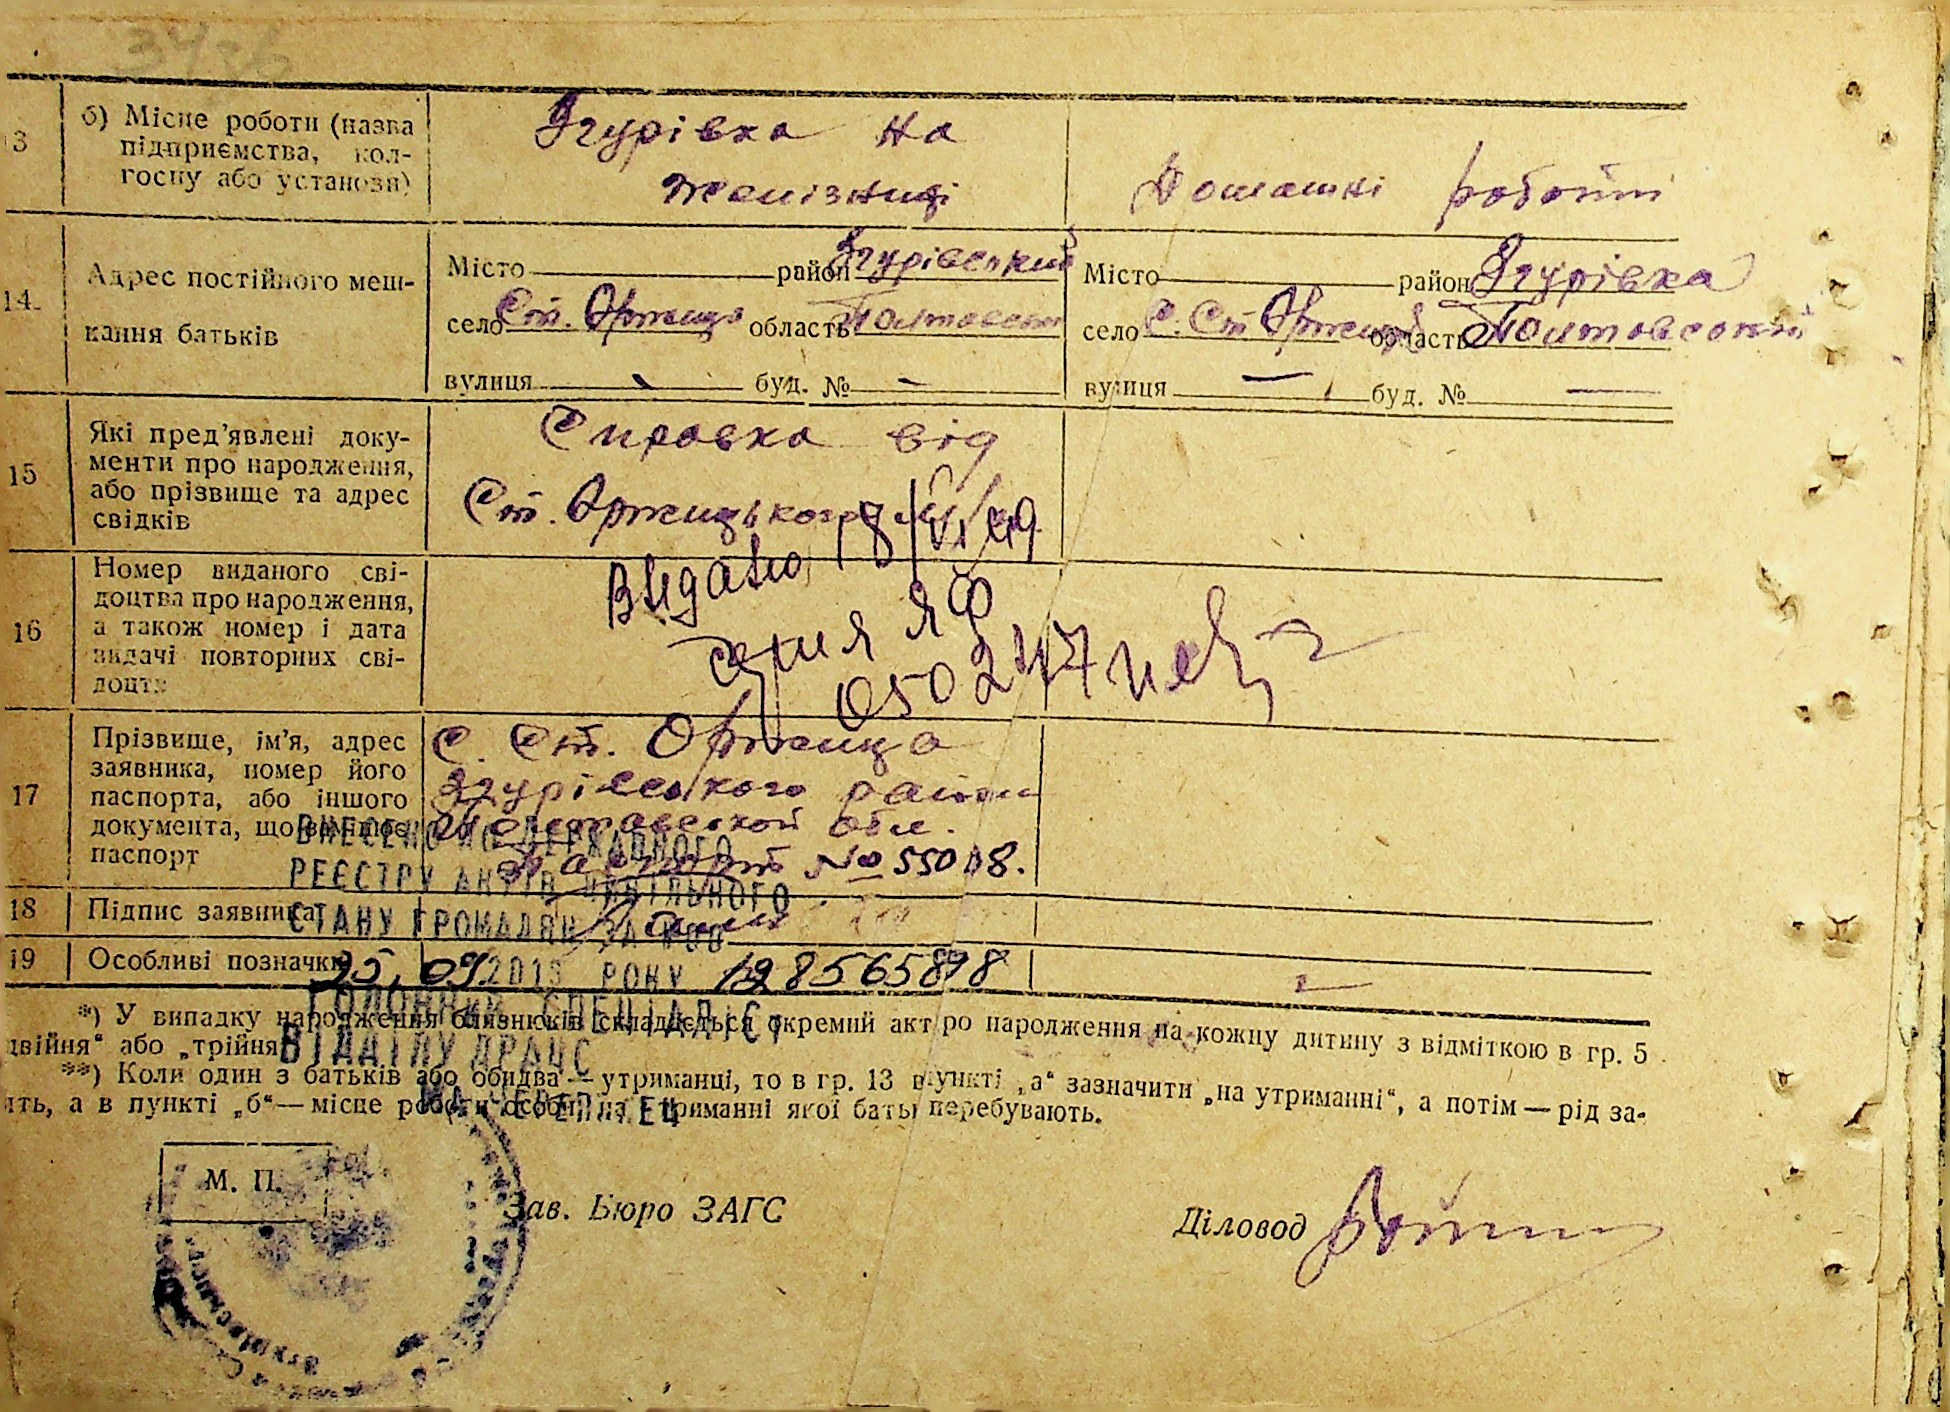 13 б) Місце роботи (назва підприємства, колгоспу або установи)
Згурівка на
Желізниці
Домашні роботі
14. Адрес постійного мешкання батьків
Місто район Згурівський
село Ст. Оржиця область Полтавськ
вулиця — буд. № —
Місто район Згурівка
село С. Ст Оржиця область Полтавський
вулиця — буд. № —
15 Які пред'явлені документи про народження, або прізвище та адрес свідків
Справка від
Ст. Оржицького
16 Номер виданого свідоцтва про народження, а також номер і дата видачі повторних свідоцтв
Видано 18/VI 49
серия ЯФ
050247
17 Прізвище, ім'я, адрес заявника, номер його паспорта, або іншого документа, що заміняє паспорт
С. Ст. Оржица
Згурівського района
Полтавской обл.
Паспорт № 55008.
18 Підпис заявника
19 Особливі позначки
ВНЕСЕНО ДО ДЕРЖАВНОГО
РЕЄСТРУ АКТІВ ЦИВІЛЬНОГО
СТАНУ ГРОМАДЯН ЗА №00
25.09.2013 РОКУ 128565898
ГОЛОВНИЙ СПЕЦІАЛІСТ
ВІДДІЛУ ДРАЦС
*) У випадку народження близнюків складається окремий акт про народження на кожну дитину з відміткою в гр. 5
двійня" або „трійня
**) Коли один з батьків або обидва — утриманці, то в гр. 13 в пункті „а" зазначити „на утриманні", а потім — рід за-
ять, а в пункті „б" — місце роботи особи, на утриманні якої батьки перебувають.
М. П.
Зав. Бюро ЗАГС
Діловод